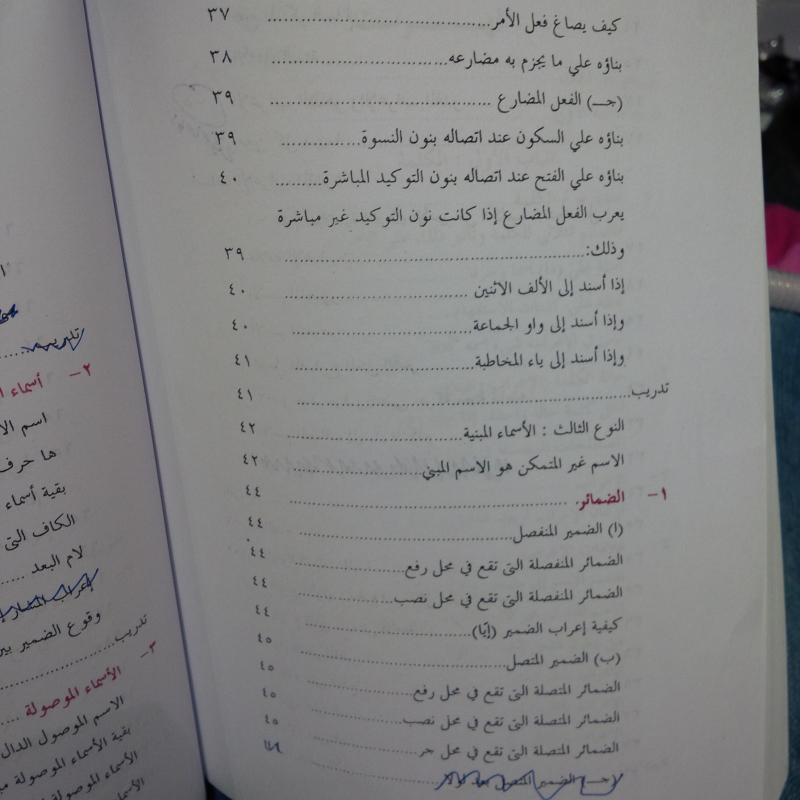 كيف يصاغ فعل الأمر........................................ ٣٧
بناؤه علي ما يجزم به مضارعه................................ ٣٨
(جـ) الفعل المضارع ........................................ ٣٩
بناؤه علي السكون عند اتصاله بنون النسوة............... ٣٩
بناؤه علي الفتح عند اتصاله بنون التوكيد المباشرة......... ٤٠
يعرب الفعل المضارع إذا كانت نون التوكيد غير مباشرة
وذلك:...................................................... ٣٩
إذا أسند إلى الألف الاثنين ................................ ٤٠
وإذا أسند إلى واو الجماعة................................. ٤٠
وإذا أسند إلى ياء المخاطبة................................. ٤١
تدريب...................................................... ٤١
النوع الثالث : الأسماء المبنية............................. ٤٢
الاسم غير المتمكن هو الاسم المبني........................ ٤٢
١- الضمائر. ................................................ ٤٤
(ا) الضمير المنفصل........................................ ٤٤
الضمائر المنفصلة التى تقع في محل رفع.................... ٤٤
الضمائر المنفصلة التى تقع في محل نصب................... ٤٤
كيفية إعراب الضمير (إيّا)................................. ٤٤
(ب) الضمير المتصل........................................ ٤٥
الضمائر المتصلة التى تقع في محل رفع..................... ٤٥
الضمائر المتصلة التى تقع في محل نصب.................... ٤٥
الضمائر المتصلة التى تقع في محل جر...................... ٤٥
الضمير المتصل بعد
تدريب
٢- أسماء
اسم
ها حرف
بقية أسماء
الكاف التى
لام البعد ......
إعراب
وقوع الضمير
تدريب..................
٣- الأسماء الموصولة ......
الاسم الموصول الدال
بقية الأسماء الموصولة
الأسماء الموصولة